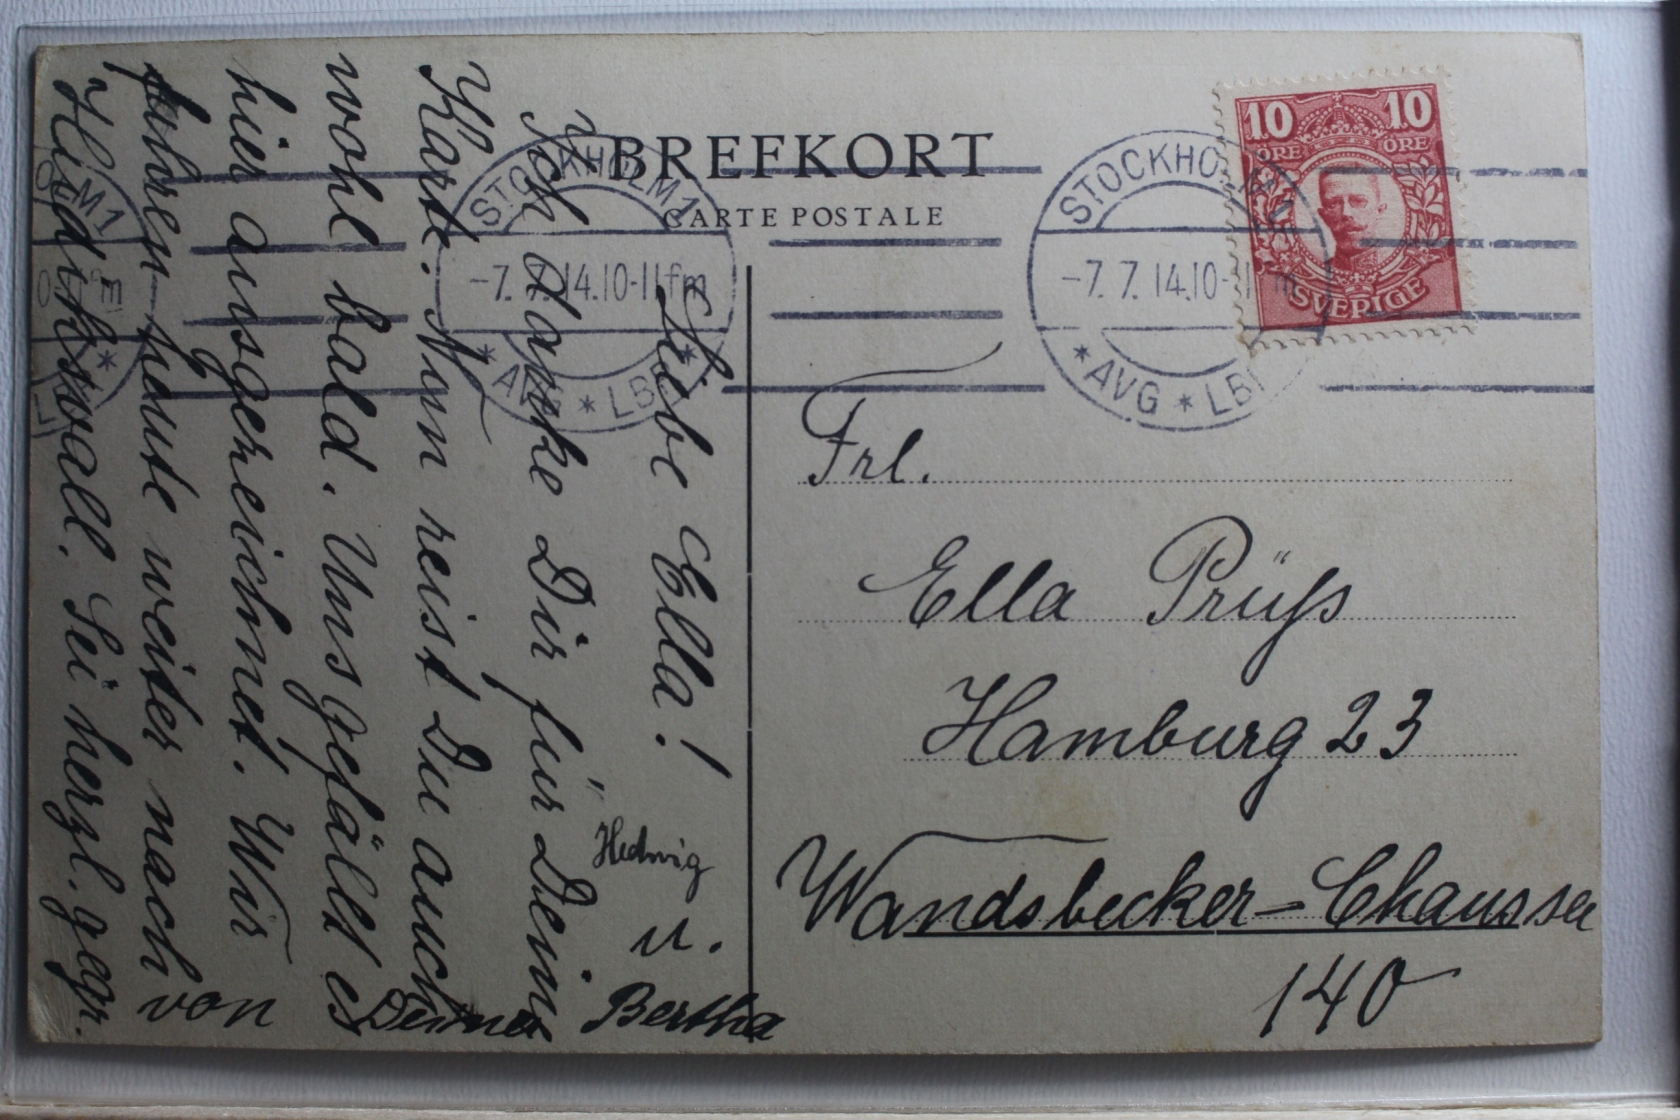 BREFKORT
CARTE POSTALE
STOCKHOLM 1
-7. 7. 14. 10-11 fm
* AVG * LBR *
STOCKHOLM 1
-7. 7. 14. 10-11 fm
* AVG * LBR
M 1
10 10
ÖRE ÖRE
SVERIGE
Frl.
Ella Prüß
Hamburg 23
Wandsbecker-Chaussee
140
Liebe Ella!
Ich danke Dir für Deine
Karte. Nun reist Du auch
wohl bald. Uns gefällt es
hier ausgezeichnet. Wir
fahren heute weiter nach
Hudikswall. Sei herzl. gegr.
von Deiner Bertha
u.
Hedwig